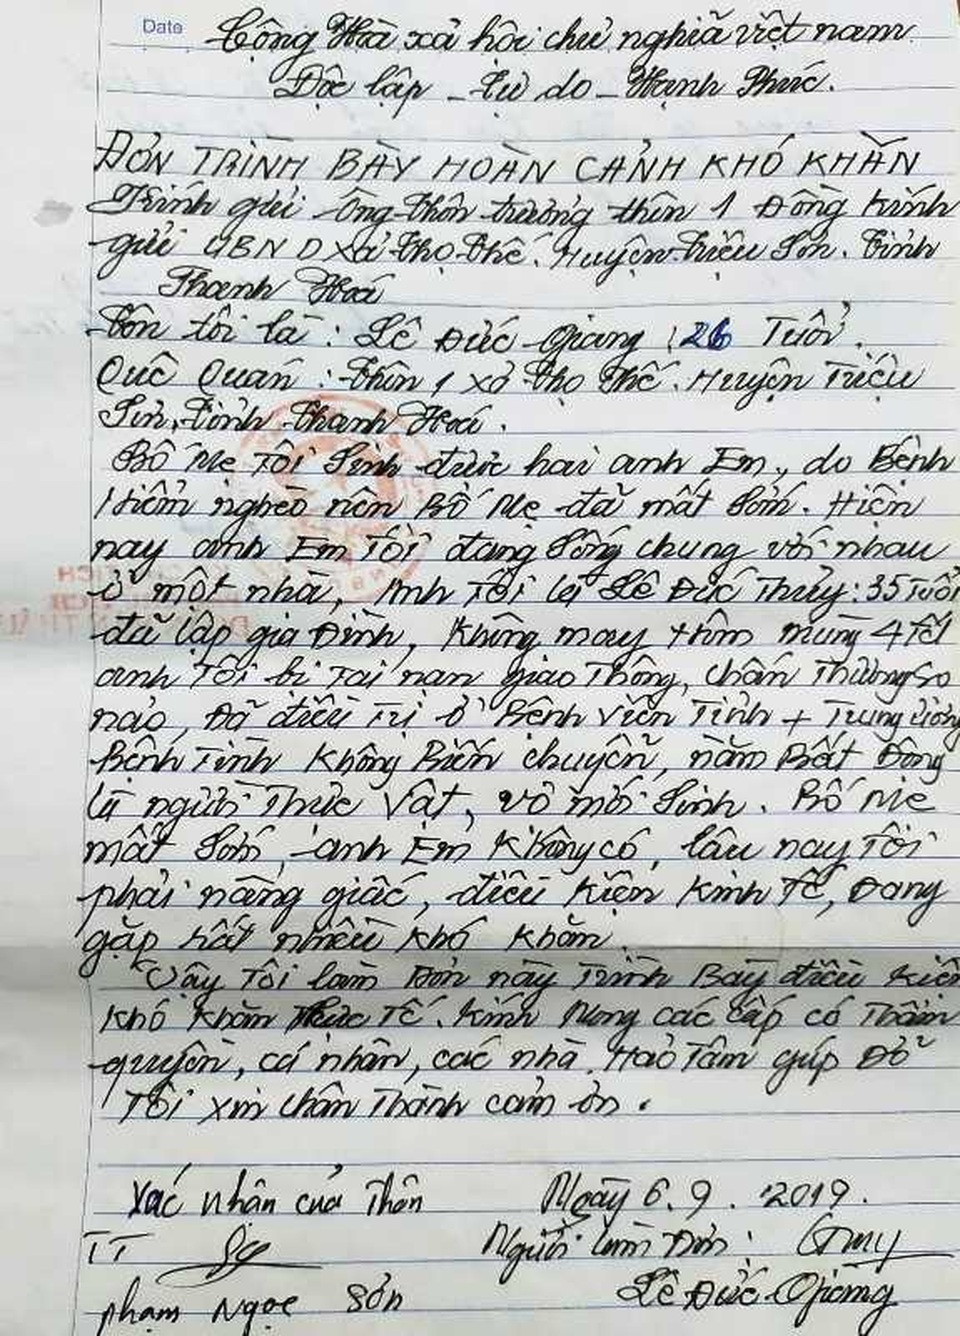 Date
Cộng Hòa xã hội chủ nghĩa việt nam
Độc lập - Tự do - Hạnh Phúc.
ĐƠN TRÌNH BÀY HOÀN CẢNH KHÓ KHĂN
Kính gửi ông thôn trưởng thôn 1 Đồng Kính
gửi UBND xã Thọ Thế. Huyện Triệu Sơn. Tỉnh
Thanh Hoá
Tên tôi là : Lê Đức Giang 26 Tuổi.
Quê Quán : Thôn 1 xã Thọ Thế. Huyện Triệu
Sơn, Tỉnh Thanh Hoá.
Bố Mẹ Tôi Sinh được hai anh Em, do Bệnh
Hiểm nghèo nên Bố Mẹ đã mất Sớm. Hiện
nay anh Em Tôi đang Sống chung với nhau
ở một nhà, Anh Tôi là Lê Đức Thủy: 35 Tuổi
đã lập gia Đình, Không may Hôm mùng 4 Tết
anh Tôi bị Tai nạn giao Thông, chấn Thương So
não, Đã điều Trị ở Bệnh Viện Tỉnh + Trung ương
Bệnh Tình Không Biến chuyển, nằm Bất Động
là người Thực Vật, vợ mới Sinh. Bố Mẹ
mất Sớm, anh Em Không có, lâu nay Tôi
phải nâng giấc, điều Kiện Kinh Tế, Đang
gặp rất nhiều Khó Khăn.
Vậy Tôi làm Đơn này Trình Bày điều Kiện
Khó Khăn Thực Tế. Kính Mong các cấp có Thẩm
quyền, cá nhân, các nhà Hảo Tâm giúp Đỡ
Tôi xin chân Thành cảm ơn.
Xác nhân của Thôn Ngày 6.9.2019.
TT Người làm Đơn:
phạm Ngọc Sơn Lê Đức Giang